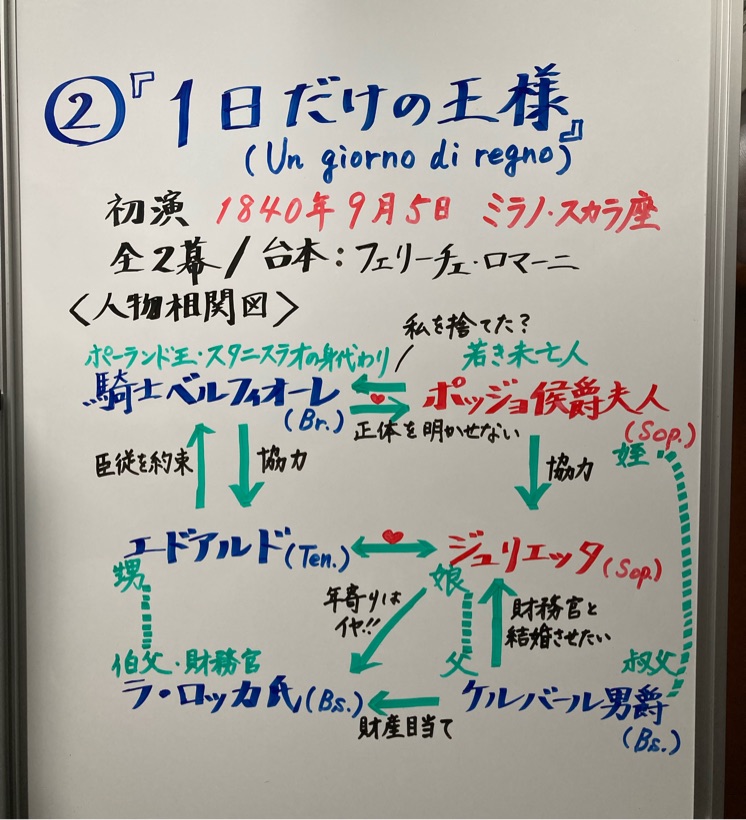 ②『1日だけの王様』
(Un giorno di regno)
初演 1840年9月5日 ミラノ・スカラ座
全2幕/台本:フェリーチェ・ロマーニ
<人物相関図>
私を捨てた?
ポーランド王・スタニスラオの身代わり
若き未亡人
騎士ベルフィオーレ
(Br.)
ポッジョ侯爵夫人
(Sop.)
正体を明かせない
姪
臣従を約束
協力
協力
エードアルド(Ten.)
ジュリエッタ(Sop)
甥
娘
年寄りは
イヤ!!
財務官と
結婚させたい
伯父・財務官
父
叔父
ラ・ロッカ氏(Bs.)
ケルバール男爵
(Bs.)
財産目当て